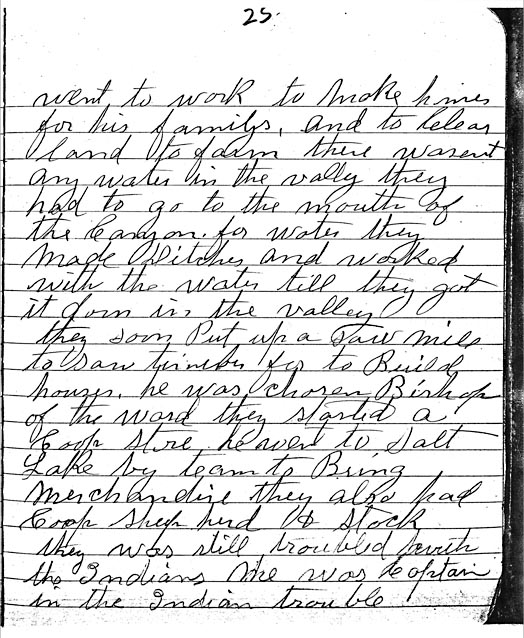 25
went to work to make himes
for his familys, and to Clear
land to farm there warent
any water in the vally they
had to go to the mouth of
the Canyon for water they
made Ditches and worked
with the water till they got
it down in the valley
they soon Put up a saw mill
to saw timber for to Build
houses. he was chosen Bishop
of the ward they started a
Coop store he went to Salt
Lake by team to Bring
Merchandise they also had
Coop sheep herd & stock
they was still troubled with
the Indians he was Captain
in the Indian trouble